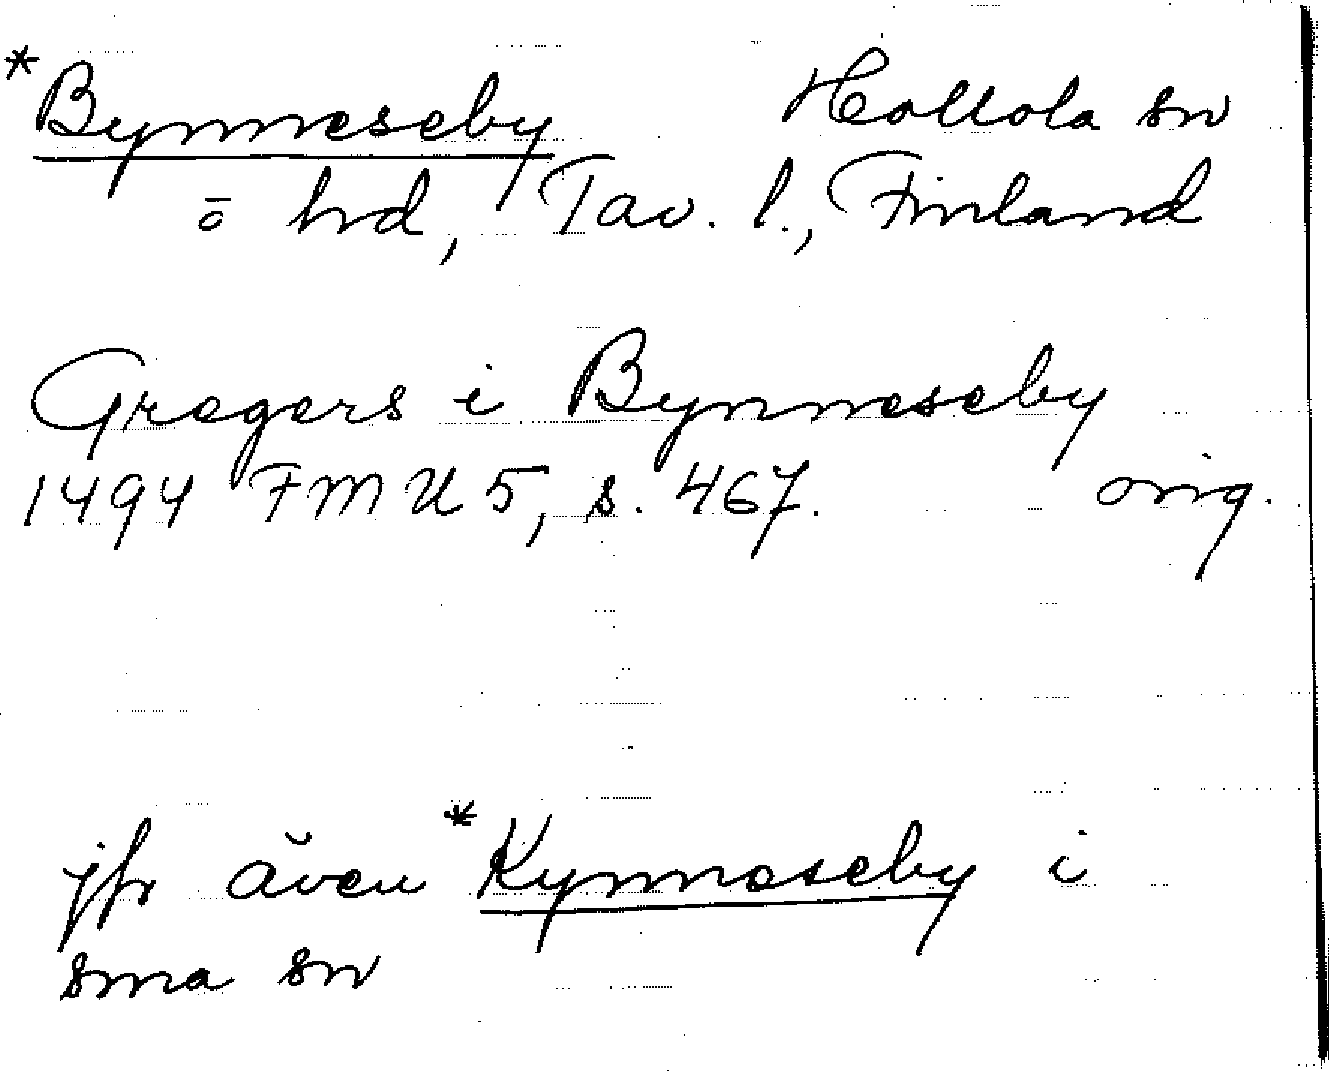 *Bynneseby Hollola sn
o hd, Tav. l., Finland
Gregers i Bynneseby
1494 FMU 5, s. 467. orig.
jfr även *Kynneseby i
sma sn